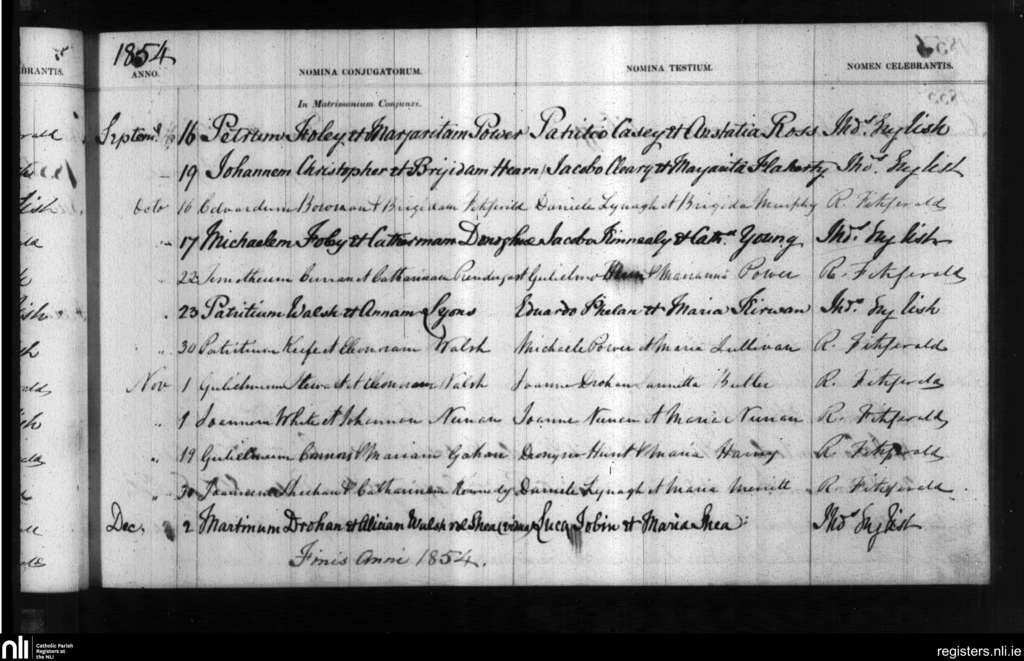 BRANTIS.
1854
ANNO.
NOMINA CONJUGATORUM.
NOMINA TESTIUM.
NOMEN CELEBRANTIS.
In Matrimonium Conjunxi.
Septem 16 Petrum Foley et Margaritam Power Patritio Casey et Anstatia Ross Thos. English
19 Johannem Christopher et Brijidam Hearn Jacobo Cleary et Margarita Flaherty Thos. English
Octo 16 Edvardum et Brigidam Daniele Lynagh et Brigida Murphy R. Fitzgerald
" 17 Michaelem Foley et Catherinam Donoghue Jacobo Kinnealy & Cath. Young Thos. English
" 22 Timotheum Curran et Catharinam Prendergast Gulielmo Marianna Power R. Fitzgerald
" 23 Patritium Walsh et Annam Lyons Eduardo Phelan et Maria Kirwan Thos. English
" 30 Patritium Keefe et Eleonoram Walsh Michaele Power et Maria Sullivan R. Fitzgerald
Nov 1 Gulielmum et Eleonoram Walsh Joanne Drohan Butler R. Fitzgerald
" 1 Joannem White et Johannam Nunan Joanne Nunan et Maria Nunan R. Fitzgerald
" 19 Gulielmum Connors & Mariam Gahan Dionysio Hunt & Maria R. Fitzgerald
" 30 Joannem Sheehan & Catharinam Kennedy Daniele Lynagh et Maria R. Fitzgerald
Dec. 2 Martinum Drohan et Aliciam Walsh vel Shea Luca Tobin et Maria Shea Thos. English
Finis Anni 1854.
nli
Catholic Parish
Registers at
the NLI
registers.nli.ie